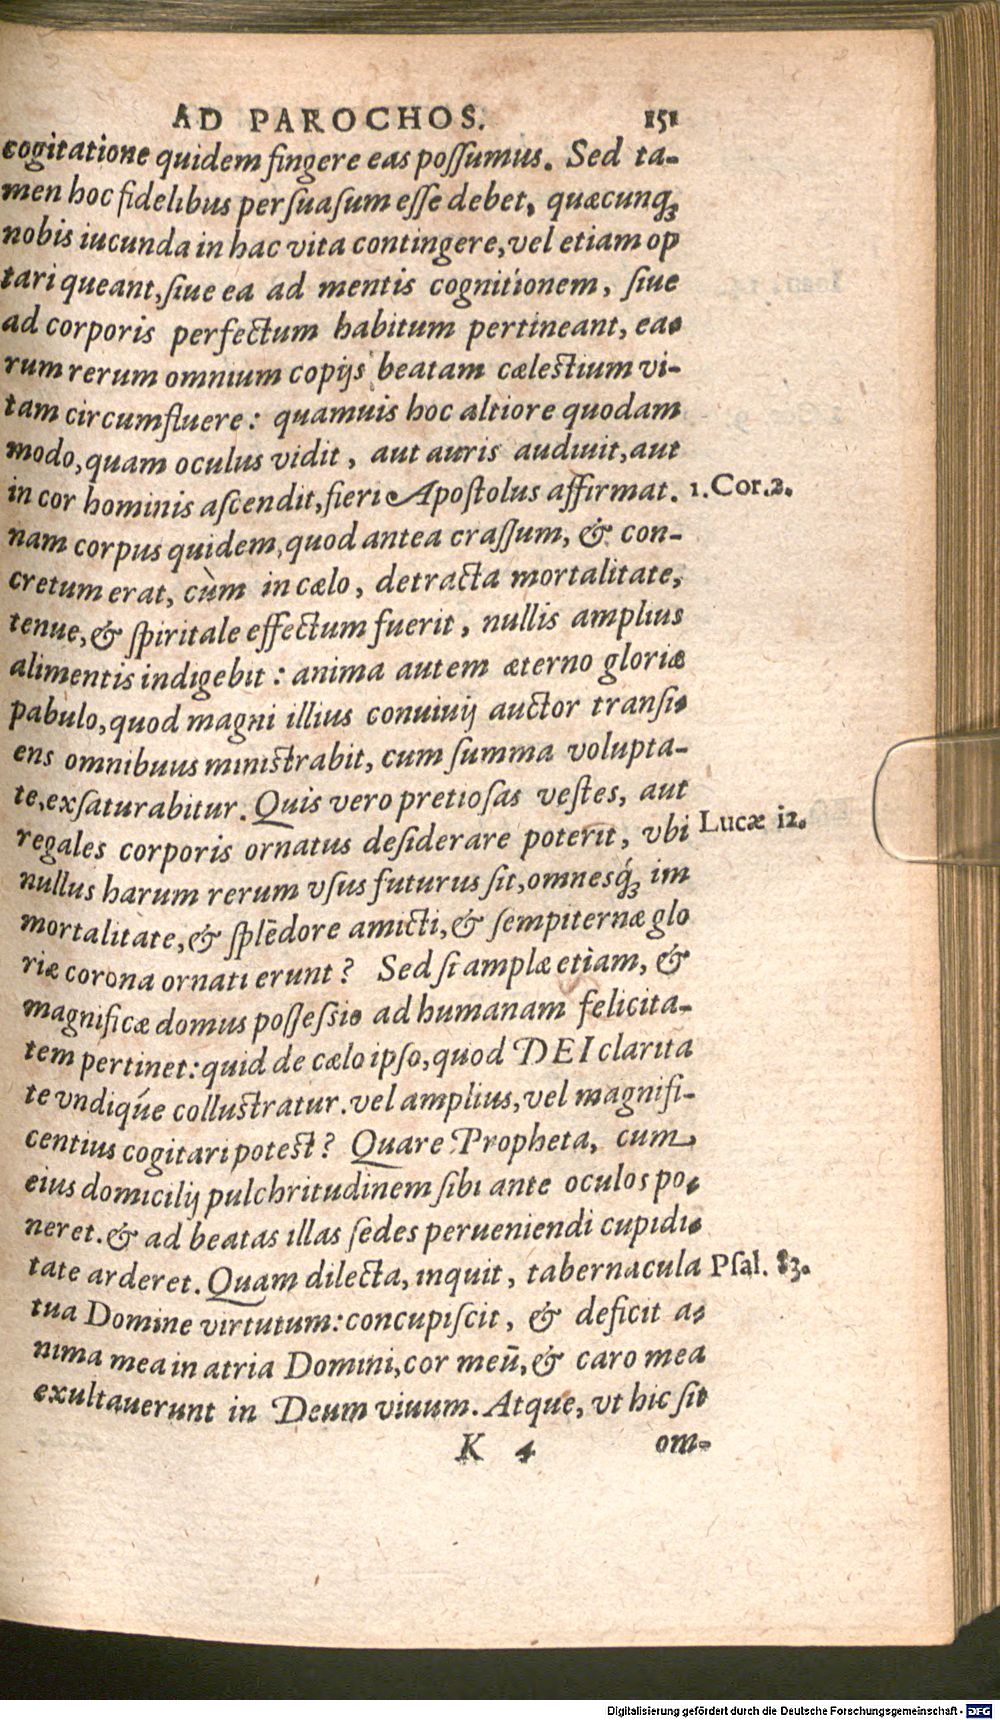 AD PAROCHOS. 151
cogitatione quidem fingere eas poſſumus. Sed ta-
men hoc fidelibus perſuaſum eſſe debet, quæcunq́;
nobis iucunda in hac vita contingere, vel etiam op
tari queant, ſiue ea ad mentis cognitionem, ſiue
ad corporis perfectum habitum pertineant, ea-
rum rerum omnium copijs beatam cæleſtium vi-
tam circumfluere: quamuis hoc altiore quodam
modo, quam oculus vidit, aut auris audiuit, aut
in cor hominis aſcendit, fieri Apoſtolus affirmat. 1. Cor. 2.
nam corpus quidem, quod antea craſſum, & con-
cretum erat, cùm in cælo, detracta mortalitate,
tenue, & ſpiritale effectum fuerit, nullis amplius
alimentis indigebit: anima autem æterno gloriæ
pabulo, quod magni illius conuiuij auctor tranſi-
ens omnibuus miniſtrabit, cum ſumma volupta-
te, exſaturabitur. Quis vero pretioſas veſtes, aut
regales corporis ornatus deſiderare poterit, vbi Lucæ 12.
nullus harum rerum vſus futurus ſit, omnesq́; im
mortalitate, & ſplēdore amicti, & ſempiternæ glo
riæ corona ornati erunt? Sed ſi amplæ etiam, &
magnificæ domus poſſeſsio ad humanam felicita-
tem pertinet: quid de cælo ipſo, quod DEI clarita
te vndiq́ue colluſtratur. vel amplius, vel magnifi-
centius cogitari poteſt? Quare Propheta, cum
eius domicilij pulchritudinem ſibi ante oculos po-
neret. & ad beatas illas ſedes perueniendi cupidi-
tate arderet. Quam dilecta, inquit, tabernacula Pſal. 83.
tua Domine virtutum: concupiſcit, & deficit a-
nima mea in atria Domini, cor meū, & caro mea
exultauerunt in Deum viuum. Atque, vt hic ſit
K 4 om-
Digitalisierung gefördert durch die Deutsche Forschungsgemeinschaft - DFG